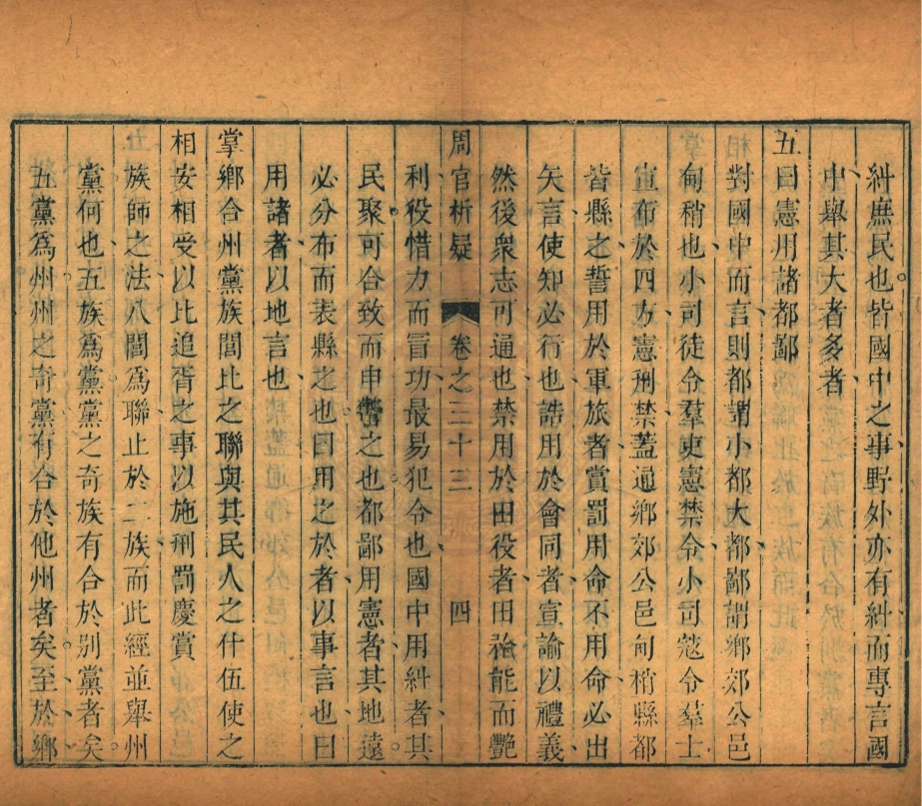 糾庶民也皆國中之事野外亦有糾而專言國
中舉其大者多者
五曰憲用諸都鄙
對國中而言則都謂小都大都鄙謂鄉郊公邑
甸稍也小司徒令羣吏憲禁令小司寇令羣士
宣布於四方憲刑禁蓋通鄉郊公邑甸稍縣都
皆縣之誓用於軍旅者賞罰用命不用命必出
矢言使知必行也誥用於會同者宣諭以禮義
然後衆志可通也禁用於田役者田 能而艷
周官析疑 卷之三十三 四
利役惜力而冒功最易犯令也國中用糾者其
民聚可合致而申 之也都鄙用憲者其地遠
必分布而表縣之也曰用之於者以事言也曰
用諸者以地言也
掌鄉合州黨族閭比之聯與其民人之什伍使之
相安相受以比追胥之事以施刑罰慶賞
族師之法八閭爲聯止於二族而此經並舉州
黨何也五族爲黨黨之奇族有合於別黨者矣
五黨爲州州之奇黨有合於他州者矣至於鄉